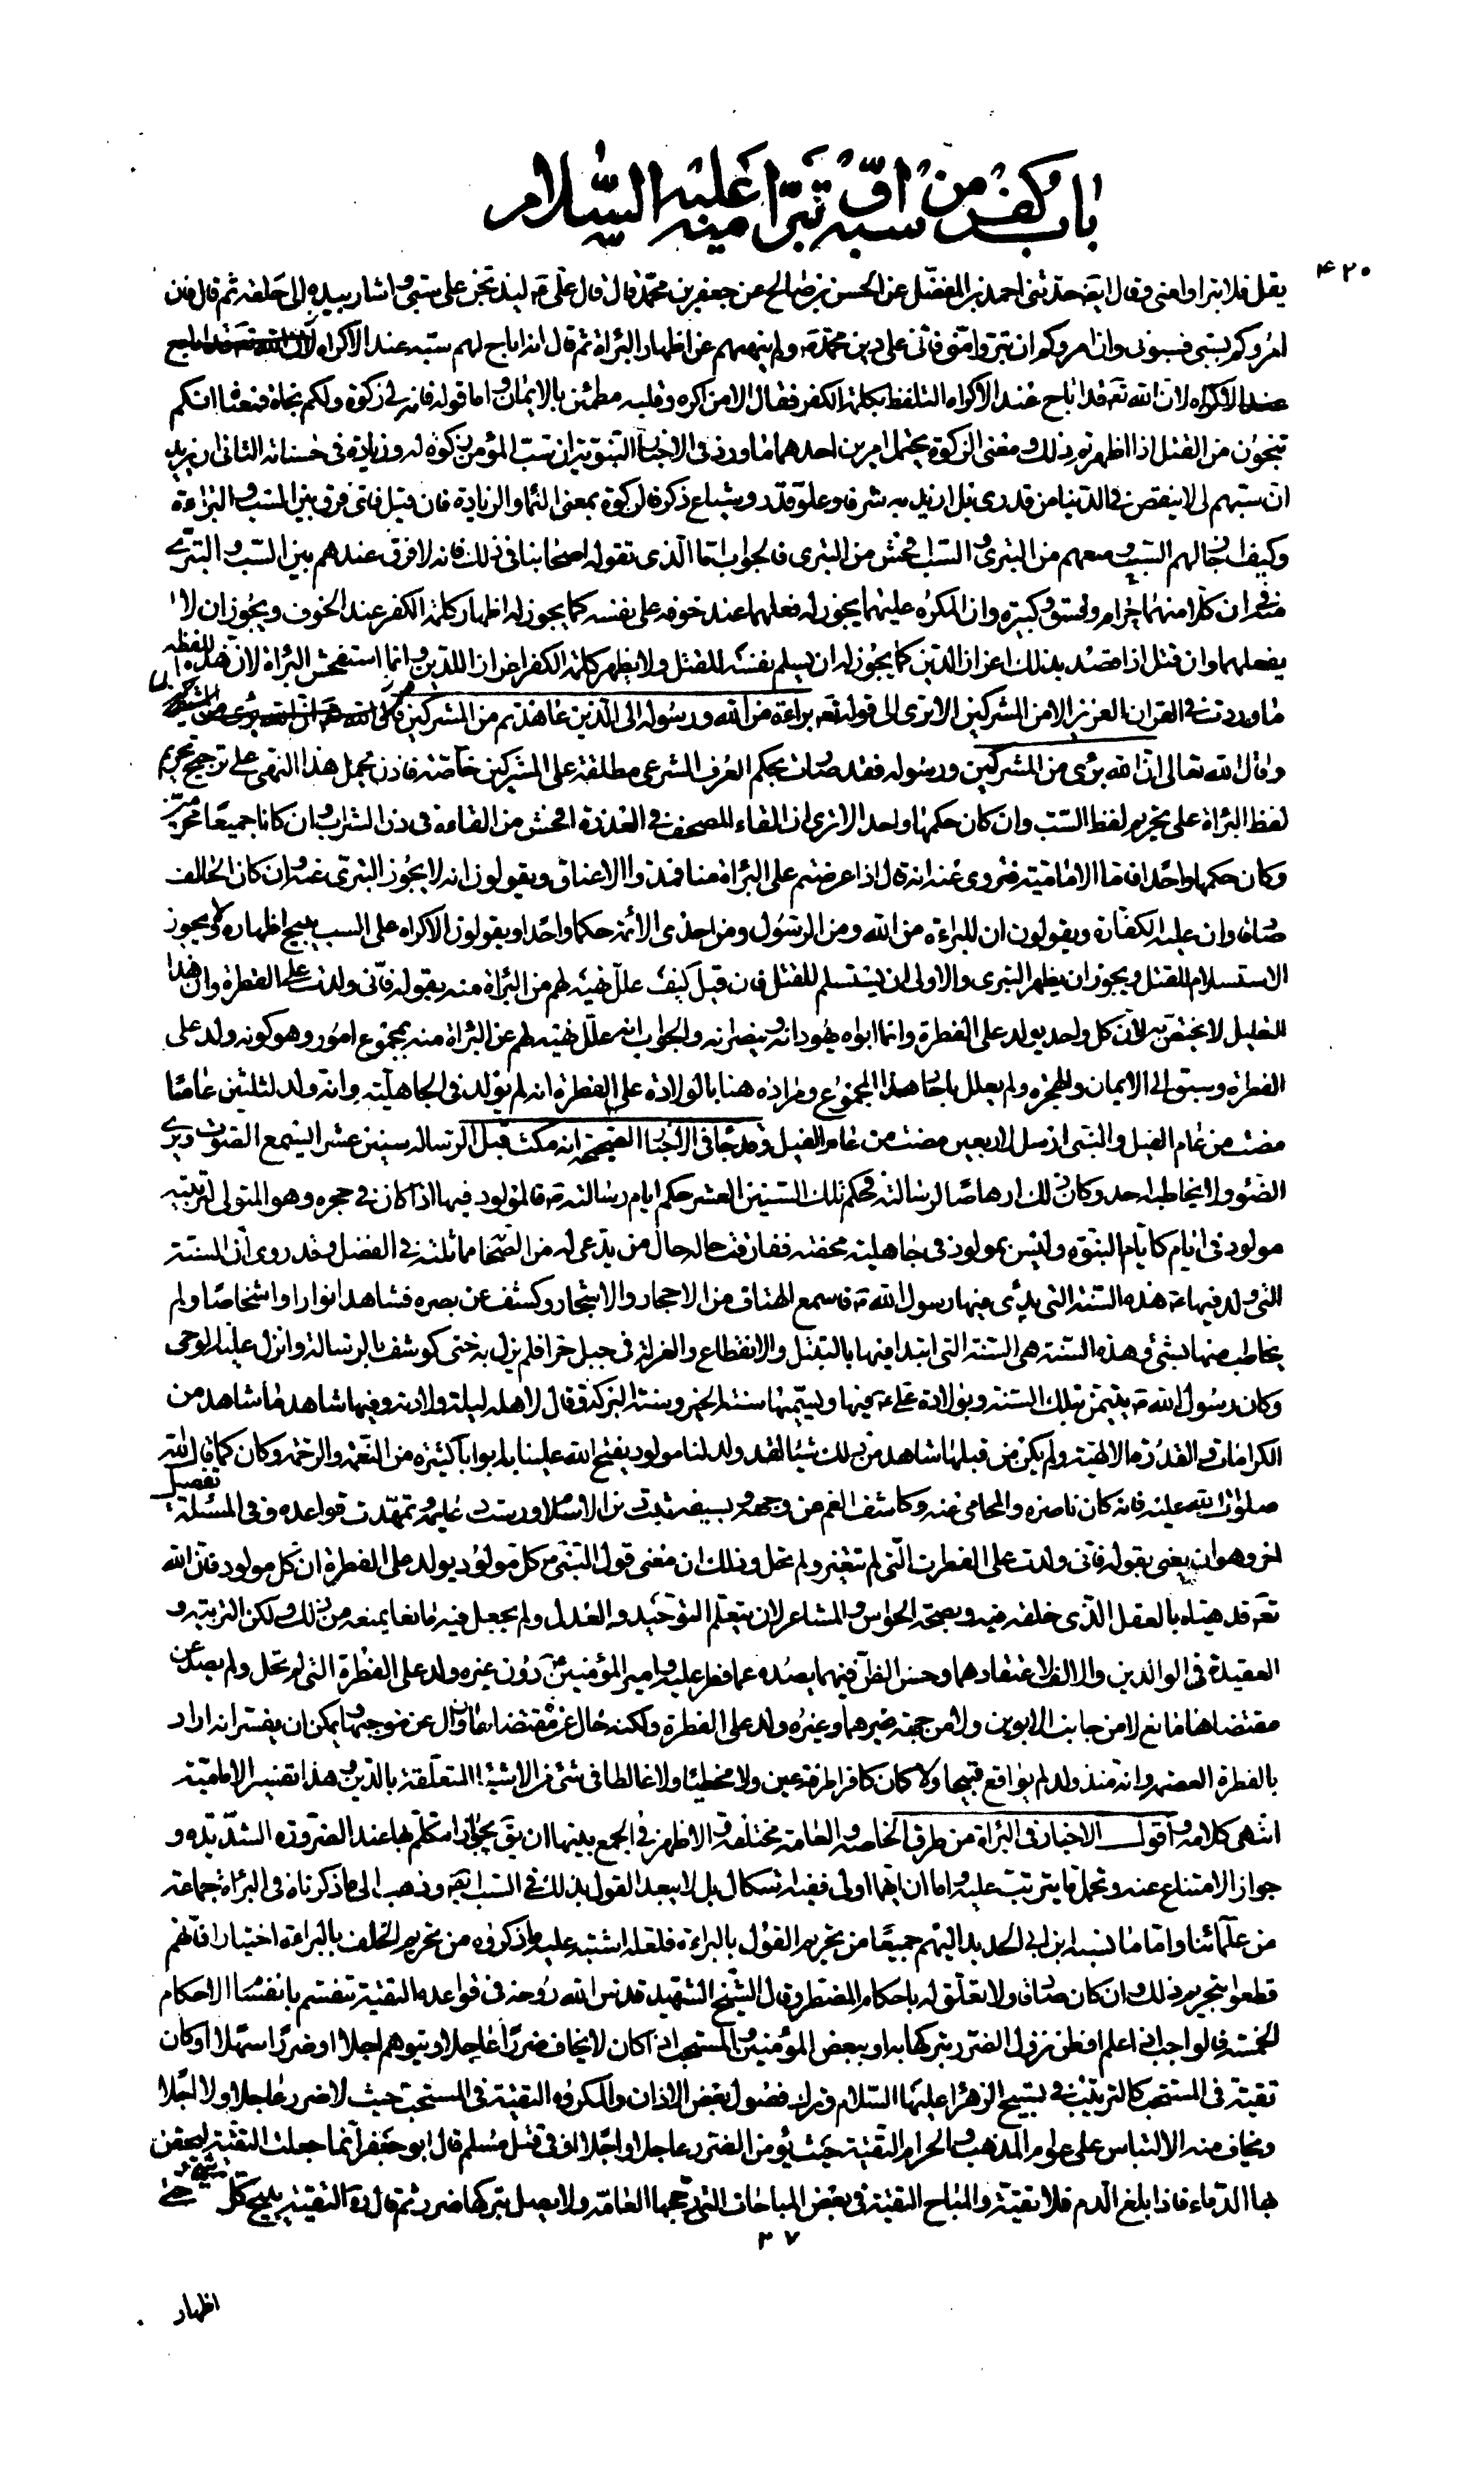 باب كفر من سبه او تبرأ منه عليه السلام
۴۲۰
يقل فلا تبراوا منى وقال ايضا حدثنى احمد بن المفضل عن الحسن بن صالح عن جعفر بن محمد قال قال على ليذبحن على سبى واشار بيده الى حلقه ثم قال فان
امروكم بسبى فسبونى وان امروكم ان تبرؤا منى فانى على دين محمد ص ولم ينههم عن اظهار البراءة ثم قال انه اباح لهم سبه عند الاكراه
عند الاكراه لان الله تعه قد اباح عند الاكراه التلفظ بكلمة الكفر فقال الا من اكره وقلبه مطمئن بالايمان واما قوله فانه لى زكوة ولكم نجاة فمعناه انكم
تنجون من القتل اذا اظهرتم ذلك ومعنى الزكوة يحتمل امرين احدهما ما ورد فى الاخبار النبوية ان سب المؤمن زكوة له وزيادة فى حسناته الثانى ان يريد
ان سبهم لى لا ينقص فى الدنيا من قدرى بل ازيد به شرفا وعلو قدر وشياع ذكر فالزكوة بمعنى النماء والزيادة فان قيل فاى فرق بين السب والبراءة
وكيف اجاز لهم السب ومنعهم من التبرى والسب افحش من التبرى فالجواب اما الذى تقوله اصحابنا فى ذلك فانه لا فرق عندهم بين السب والتبرى
فى ان كلا منهما حرام وفسق وكبيرة وان المكره عليهما يجوز له فعلهما عند خوفه على نفسه كما يجوز له اظهار كلمة الكفر عند الخوف ويجوز ان لا
يفعلهما وان قتل اذا قصد بذلك اعزاز الدين كما يجوز له ان يسلم نفسه للقتل ولا يظهر كلمة الكفر اعزازا للدين وانما استفحش البراءة لان هذه اللفظة
ما وردت فى القران العزيز الا من المشركين الا ترى الى قوله تعه براءة من الله ورسوله الى الذين عاهدتم من المشركين
وقال الله تعالى ان الله برئ من المشركين ورسوله فقد صارت بحكم العرف الشرعى مطلقة على المشركين خاصة فاذن يحمل هذا النهى على ترجيح تحريم
لفظ البراءة على تحريم لفظ السب وان كان حكمهما واحدا الا ترى ان القاء المصحف فى العذرة افحش من القاءه فى دن الشراب وان كانا جميعا محرمين
وكان حكمهما واحدا فاما الامامية فتروى عنه انه قال اذا عرضتم على البراءة منا فمدوا الاعناق ويقولون انه لا يجوز التبرى عنه وان كان الحالف
صادقا وان عليه الكفارة ويقولون ان للبراءة من الله ومن الرسول ومن احدى الائمة حكما واحدا ويقولون الاكراه على السب يبيح اظهاره ولا يجوز
الاستسلام للقتل ويجوز ان يظهر التبرى والاولى ان يستسلم للقتل فان قيل كيف علل نهيه لهم من البراءة منه بقوله فانى ولدت على الفطرة وان هذا
التعليل لا يختص به لان كل واحد يولد على الفطرة وانما ابواه يهودانه وينصرانه والجواب انه علل نهيه لهم عن البراءة منه بمجموع امور وهو كونه ولد على
الفطرة وسبق الى الايمان والهجرة ولم يعلل باحاد هذا المجموع ومراده هنا بالولادة على الفطرة انه لم يولد فى الجاهلية وانه ولد لثلثين عاما
مضت من عام الفيل والنبى ارسل لاربعين مضت من عام الفيل وقد جاء فى الاخبار الصحيحة انه مكث قبل الرسالة سنين عشرا يسمع الصوت ويرى
الضوء ولا يخاطبه احد وكان ذلك ارهاصا لرسالته فحكم تلك السنين العشر حكم ايام رسالته ص فالمولود فيها اذا كان فى حجره وهو المتولى لتربيته
مولود فى ايام كايام النبوة وليس بمولود فى جاهلية محضة ففارقت حاله حال من يدعى له من الصحابة مماثلته فى الفضل وقد روى ان السنة
التى ولد فيها ع هذه السنة التى بدئ فيها رسول الله ص فاسمع الهتاف من الاحجار والاشجار وكشف عن بصره فشاهد انوارا واشخاصا ولم
يخاطب منها بشئ وهذه السنة هى السنة التى ابتدا فيها بالتبتل والانقطاع والعزلة فى جبل حرا فلم يزل به حتى كوشف بالرسالة وانزل عليه الوحى
وكان رسول الله ص يتيمن بتلك السنة وبولادة على ع فيها ويسميها سنة الخير وسنة البركة وقال لاهله ليلة ولادته وفيها شاهد ما شاهد من
الكرامات والقدرة الالهية ولم يكن من قبلها شاهد من ذلك شيئا لقد ولد لنا مولود يفتح الله علينا به ابوابا كثيرة من النعمة والرحمة وكان كما قال
صلوات الله عليه فانه كان ناصره والمحامى عنه وكاشف الغم عن وجهه وبسيفه ثبت دين الاسلام ورست دعائمه وتمهدت قواعده وفى المسئلة تفصيل
اخر وهو ان يعنى بقوله فانى ولدت على الفطرة التى لم تتغير ولم تحل وذلك ان معنى قول النبى ص كل مولود يولد على الفطرة ان كل مولود فان الله
تعه قد هيأه بالعقل الذى خلقه فيه وبصحة الحواس والمشاعر لان يتعلم التوحيد والعدل ولم يجعل فيه مانعا يمنعه من ذلك ولكن التربية و
العقيدة فى الوالدين والالف لاعتقادهما وحسن الظن فيهما يصده عما فطر عليه وامير المؤمنين ع دون غيره ولد على الفطرة التى لم تحل ولم يصد عن
مقتضاها مانع لا من جانب الابوين ولا من جهة غيرهما وغيره ولد على الفطرة ولكنه حال عن مقتضاها وزال عن موجبها ويمكن ان يفسر انه اراد
بالفطرة العصمة وانه منذ ولد لم يواقع قبيحا ولا كان كافرا طرفة عين ولا مخطئا ولا غالطا فى شئ من الاشياء المتعلقة بالدين وهذا تفسير الامامية
انتهى كلامه واقول الاخبار فى البراءة من طرق الخاصة والعامة مختلفة والاظهر فى الجمع بينها ان يق بجواز التكلم بها عند الضرورة الشديدة و
جواز الامتناع عنه وتحمل ما يترتب عليه واما ان ايهما اولى ففيه اشكال بل لا يبعد القول بذلك فى السب ايضا وذهب الى ما ذكرناه فى البراءة جماعة
من علمائنا واما ما نسبه ابن ابى الحديد اليهم جميعا من تحريم القول بالبراءة فلعله اشتبه عليه ما ذكروه من تحريم الحلف بالبراءة اختيارا فانهم
قطعوا بتحريم ذلك وان كان صادقا ولا تعلق له باحكام المضطر وقال الشيخ الشهيد قدس الله روحه فى قواعده التقية تنقسم بانقسام الاحكام
الخمسة فالواجب اذا علم او ظن نزول الضرر بتركها به او ببعض المؤمنين والمستحب اذا كان لا يخاف ضررا عاجلا ويتوهم اجلا او ضررا سهلا او كان
تقية فى المستحب كالترتيب فى تسبيح الزهراء عليها السلام وترك فصول بعض الاذان والمكروه التقية فى المستحب حيث لا ضرر عاجلا ولا اجلا
ويخاف منه الالتباس على عوام المذهب والحرام التقية حيث يؤمن الضرر عاجلا واجلا او فى قتل مسلم قال ابو جعفر انما جعلت التقية ليحقن
بها الدماء فاذا بلغ الدم فلا تقية والمباح التقية فى بعض المباحات التى رجحها العامة ولا يصل بتركها ضرر ثم قال ره التقية يبيح كل شئ حتى
۳۷
اظهار